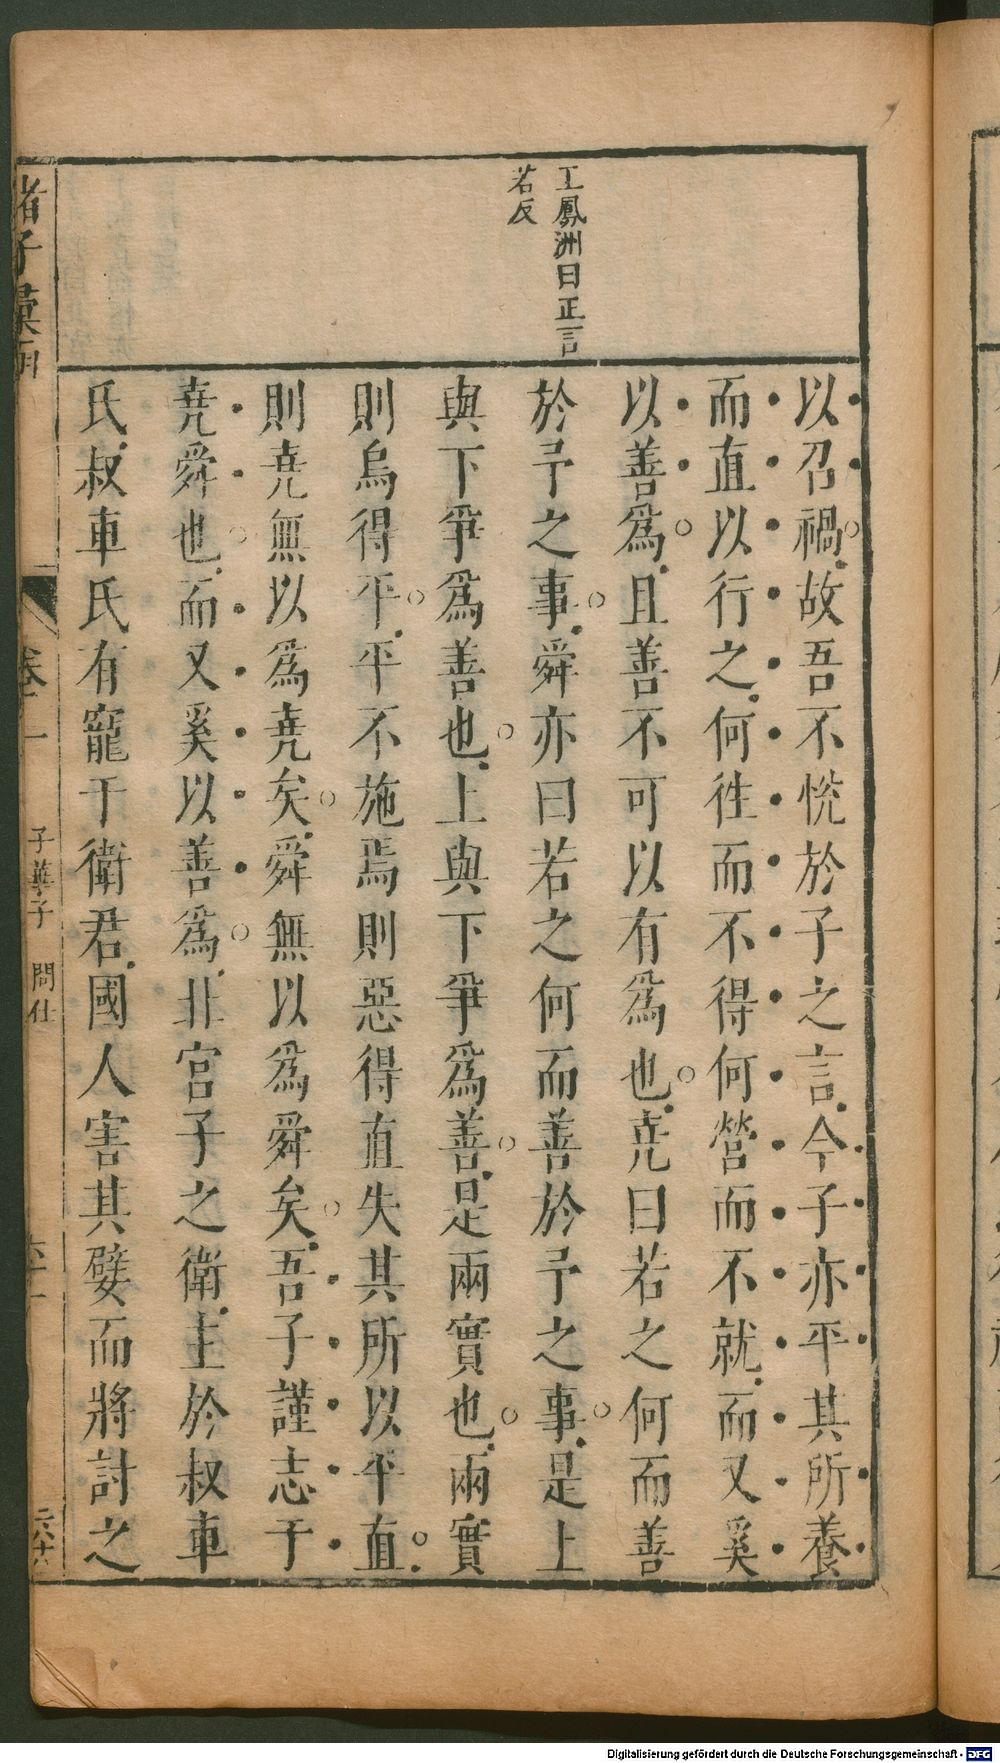 王鳳洲曰正言
若反
以召禍故吾不恍於子之言今子亦平其所養
而直以行之何徃而不得何營而不就而又奚
以善爲且善不可以有爲也堯曰若之何而善
於予之事舜亦曰若之何而善於予之事是上
與下爭爲善也上與下爭爲善是兩實也兩實
則烏得平平不施焉則惡得直失其所以平直
則堯無以爲堯矣舜無以爲舜矣吾子謹志于
堯舜也而又奚以善爲北宮子之衛主於叔車
氏叔車氏有寵于衛君國人害其嬖而將討之
諸子彙函
卷二
子華子 問仕
Digitalisierung gefördert durch die Deutsche Forschungsgemeinschaft - DFG